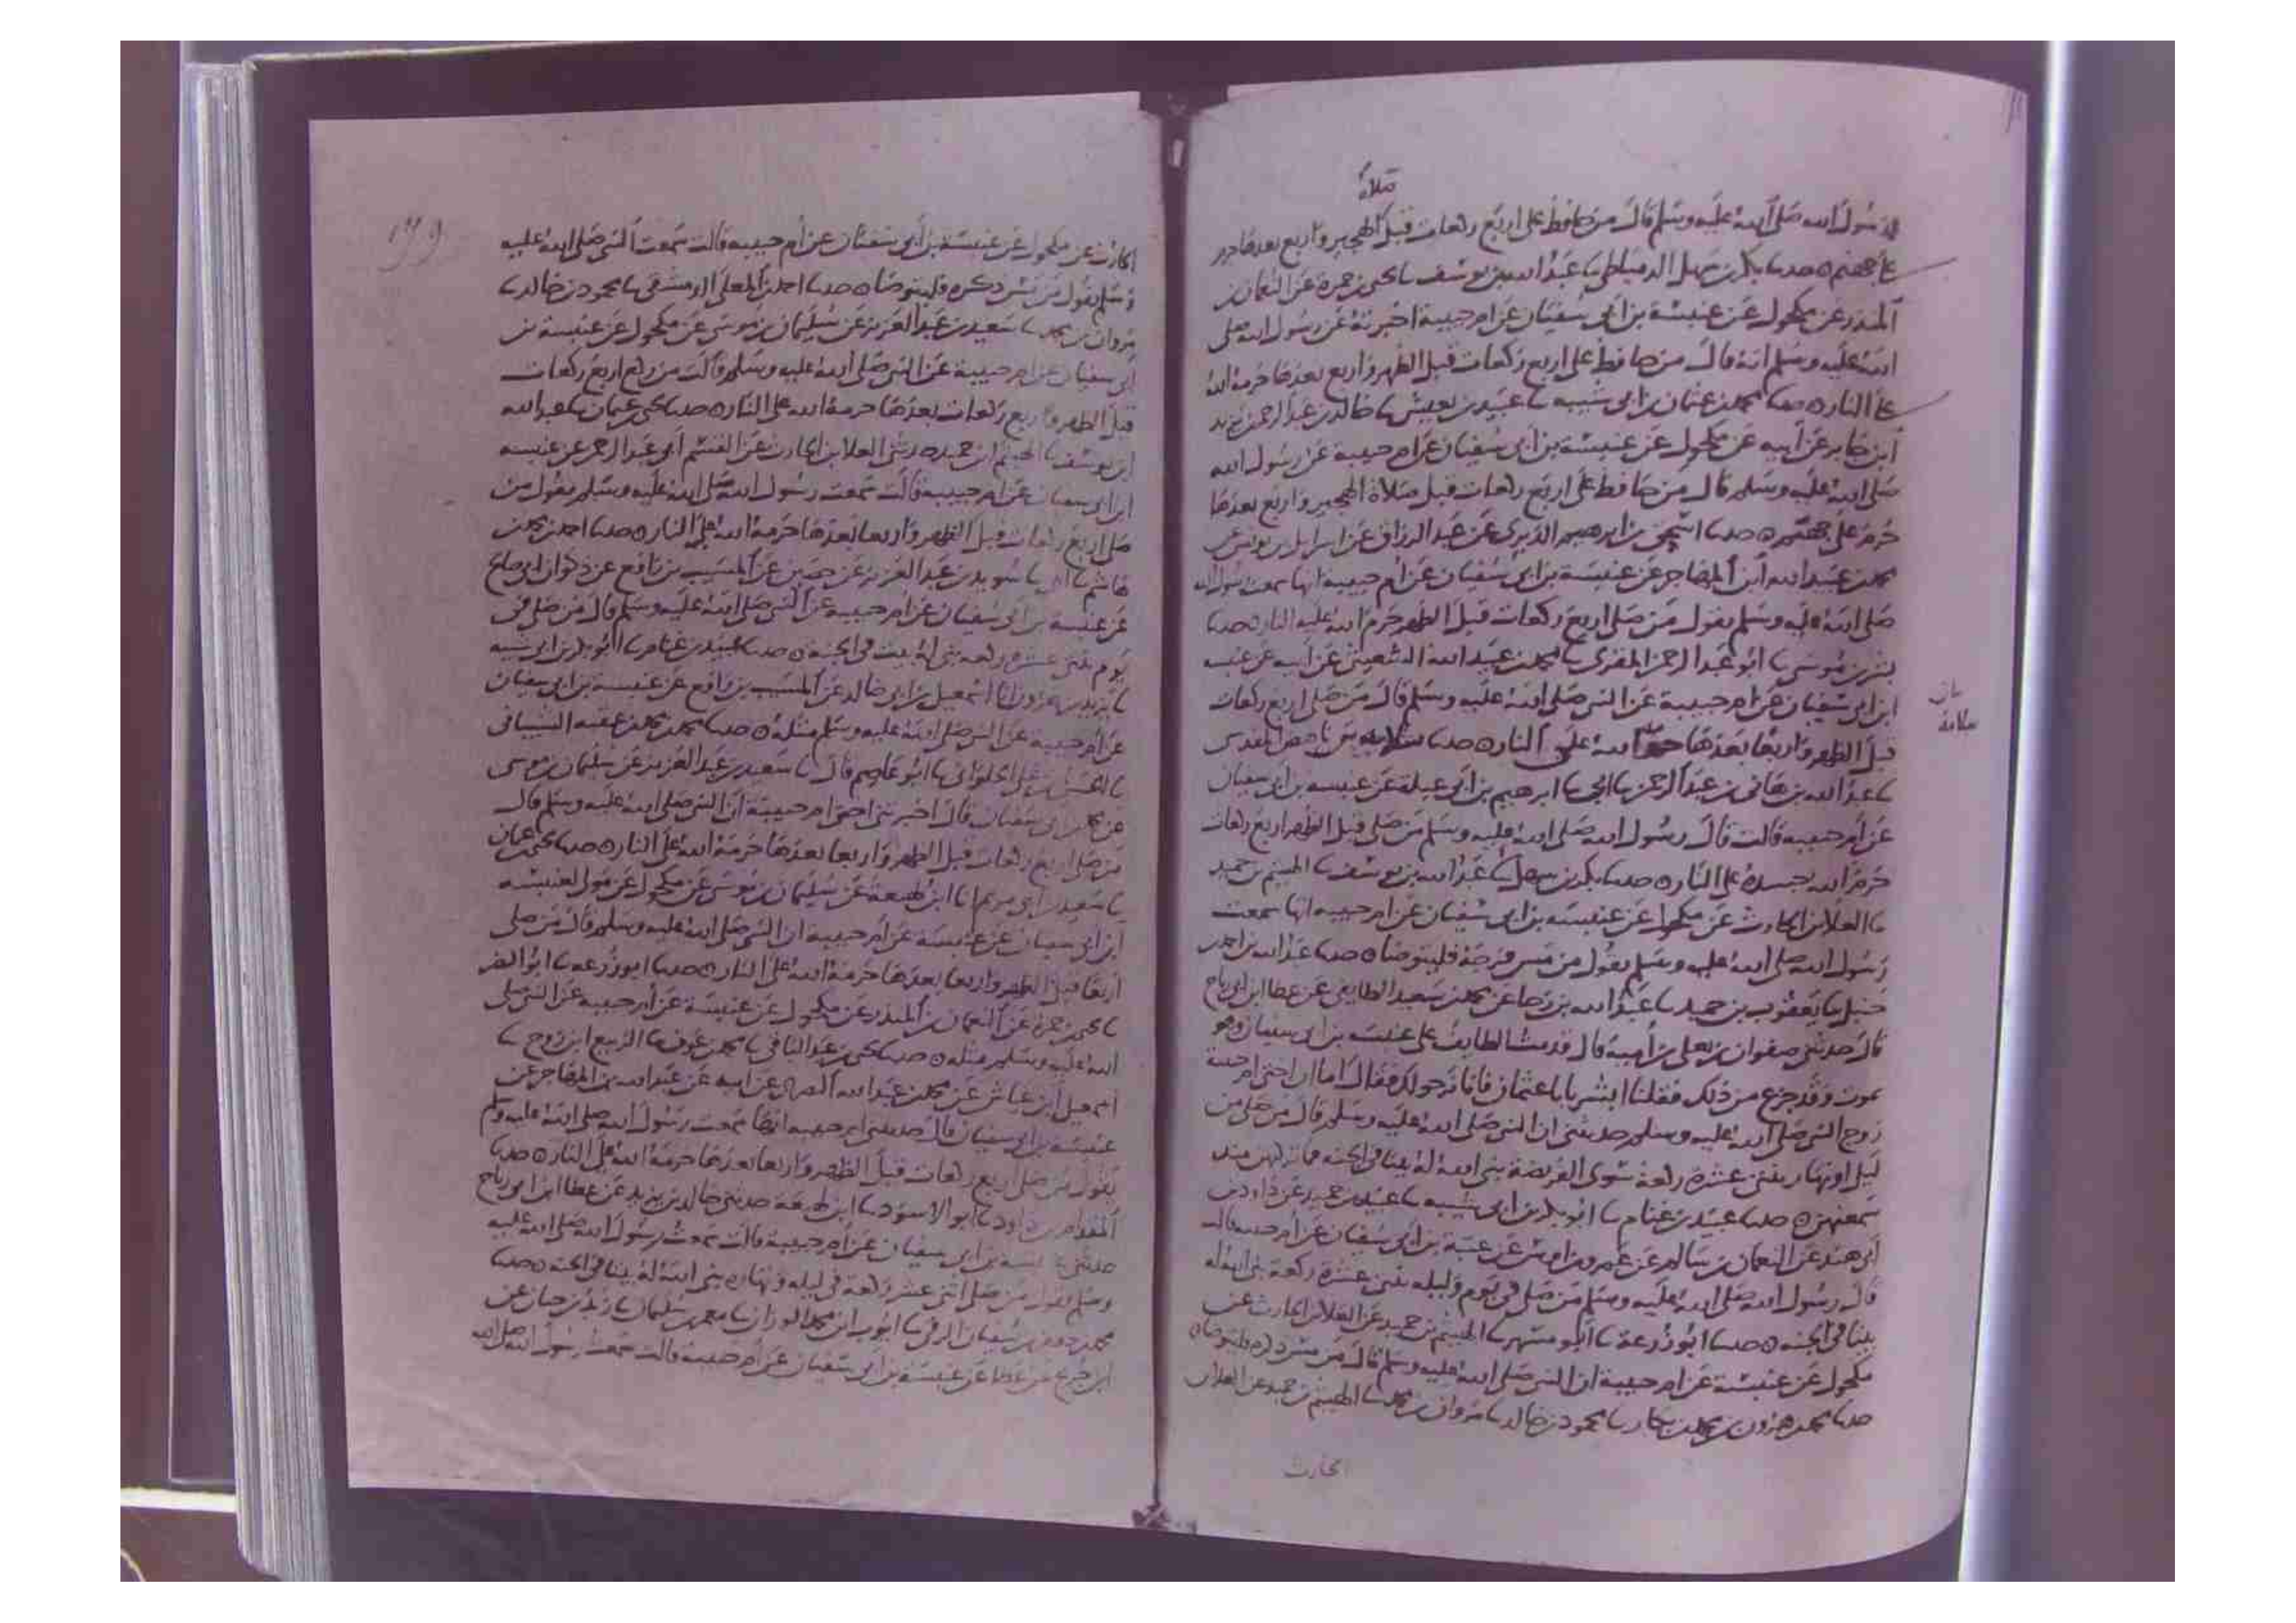 صلاة
ان رسول الله صلى الله عليه وسلم قال من حافظ على اربع ركعات قبل الهجير واربع بعدها حرم
على جهنم ٥ حدثنا بكر بن سهل الدمياطي ثنا عبد الله بن يوسف ثنا يحيى بن حمزة عن النعمان بن
المنذر عن مكحول عن عنبسة بن ابي سفيان عن ام حبيبة اخبرته عن رسول الله صلى
الله عليه وسلم انه قال من حافظ على اربع ركعات قبل الظهر واربع بعدها حرمه الله
على النار ٥ حدثنا محمد بن عثمان بن ابي شيبه ثنا عبيد بن يعيش ثنا خالد بن عبد الرحمن بن يزيد
ابن جابر عن ابيه عن مكحول عن عنبسة بن ابي سفيان عن ام حبيبة عن رسول الله
صلى الله عليه وسلم قال من حافظ على اربع ركعات قبل صلاة الهجير واربع بعدها
حرم على جهنم ٥ حدثنا اسحق بن ابرهيم الدبري عن عبد الرزاق عن اسرايل بن يونس عن
محمد بن عبيد الله ابن المهاجر عن عنبسة بن ابي سفيان عن ام حبيبة انها سمعت رسول الله
صلى الله عليه وسلم يقول من صلى اربع ركعات قبل الظهر حرم الله عليه النار ٥ حدثنا
بشر بن موسى ثنا ابو عبد الرحمن المقرى ثنا محمد بن عبد الله الشعيثي عن ابيه عن عنبسه
ابن ابي سفيان عن ام حبيبة عن النبي صلى الله عليه وسلم قال من صلى اربع ركعات
قبل الظهر واربعا بعدها حرمه الله على النار ٥ حدثنا سلامه بن ناهض المقدسي
سلامة
ثنا عبد الله بن هاني بن عبد الرحمن ثنا ابي ثنا ابرهيم بن ابي عبلة عن عنبسه بن ابي سفيان
عن ام حبيبه قالت قال رسول الله صلى الله عليه وسلم من صلى قبل الظهر اربع ركعات
حرم الله جسده على النار ٥ حدثنا بكر بن سهل ثنا عبد الله بن يوسف ثنا الهيثم بن حميد
ثنا العلا بن الحارث عن مكحول عن عنبسه بن ابي سفيان عن ام حبيبه انها سمعت
رسول الله صلى الله عليه وسلم يقول من مس فرجه فليتوضا ٥ حدثنا عبد الله بن احمد بن
حنبل ثنا يعقوب بن حميد ثنا عبد الله بن رجا عن محمد بن سعيد الطايفي عن عطا ابن ابي رباح
قال حدثني صفوان بن يعلى بن امية قال قدمت الطايف على عنبسه بن ابي سفيان وهو
يموت وقد جزع من ذلك فقلنا ابشر يابا عثمان فانا نرجو لك فقال اما ان اختي ام حبيبة
زوج النبي صلى الله عليه وسلم حدثتني ان النبي صلى الله عليه وسلم قال من صلى من
ليل او نهار ثنتي عشرة ركعة سوى الفريضة بنى الله له بيتا في الجنه فما تركتهن منذ
سمعتهن ٥ حدثنا عبيد بن غنام ثنا ابو بكر بن ابي شيبه ثنا عبيده بن حميد عن داود بن
ابي هند عن النعمان بن سالم عن عمرو بن اوس عن عنبسة بن ابي سفيان عن ام حبيبه قالت
قال رسول الله صلى الله عليه وسلم من صلى في يوم وليله ثنتي عشرة ركعة بنى الله له
بيتا في الجنه ٥ حدثنا ابو زرعة ثنا ابو مسهر ثنا الهيثم بن حميد عن العلا بن الحارث عن
مكحول عن عنبسة عن ام حبيبة ان النبي صلى الله عليه وسلم قال من مس ذكره فليتوضا ٥
حدثنا محمد بن هرون بن محمد بن بكار ثنا محمود بن خالد ثنا مروان بن محمد ثنا الهيثم بن حميد عن العلا بن
الحارث
١٣٩
الحارث عن مكحول عن عنبسة بن ابي سفيان عن ام حبيبه قالت سمعت النبي صلى الله عليه
وسلم يقول من مس ذكره فليتوضا ٥ حدثنا احمد بن المعلى الدمشقي ثنا محمود بن خالد ثنا
مروان بن محمد ثنا سعيد بن عبد العزيز عن سليمان بن موسى عن مكحول عن عنبسة بن
ابي سفيان عن ام حبيبة عن النبي صلى الله عليه وسلم قالت من ركع اربع ركعات
قبل الظهر واربع ركعات بعدها حرمه الله على النار ٥ حدثنا يحيى بن عثمان ثنا عبد الله
ابن يوسف ثنا الهيثم ابن حميد حدثني العلا بن الحارث عن القسم ابي عبد الرحمن عن عنبسه
ابن ابي سفيان عن ام حبيبه قالت سمعت رسول الله صلى الله عليه وسلم يقول من
صلى اربع ركعات قبل الظهر واربعا بعدها حرمه الله على النار ٥ حدثنا احمد بن محمد بن
هاشم ثنا ابي ثنا سويد بن عبد العزيز عن حصين عن المسيب بن رافع عن ذكوان ابي صالح
عن عنبسة بن ابي سفيان عن ام حبيبه عن النبي صلى الله عليه وسلم قال من صلى في
يوم ثنتي عشرة ركعه بني له بيت في الجنة ٥ حدثنا عبيد بن غنام ثنا ابو بكر بن ابي شيبه
ثنا يزيد بن هرون انا اسمعيل بن ابي خالد عن المسيب بن رافع عن عنبسة بن ابي سفيان
عن ام حبيبة عن النبي صلى الله عليه وسلم مثله ٥ حدثنا محمد بن محمد بن عقبه الشيباني
ثنا الحسن بن علي الحلواني ثنا ابو عاصم قال ثنا سعيد بن عبد العزيز عن سليمان بن موسى
عن محمد بن ابي سفيان قال اخبرتني اختي ام حبيبة ان النبي صلى الله عليه وسلم قال
من صلى اربع ركعات قبل الظهر واربعا بعدها حرمه الله على النار ٥ حدثنا يحيى بن عثمان
ثنا سعيد بن ابي مريم انا ابن لهيعة عن سليمان بن موسى عن مكحول عن مولى لعنبسه
ابن ابي سفيان عن عنبسة عن ام حبيبة ان النبي صلى الله عليه وسلم قال من صلى
اربعا قبل الظهر واربعا بعدها حرمه الله على النار ٥ حدثنا ابو زرعه ثنا ابو النضر
ثنا يحيى بن حمزة عن النعمان بن المنذر عن مكحول عن عنبسة عن ام حبيبه عن النبي صلى
الله عليه وسلم مثله ٥ حدثنا يحيى بن عبد الباقي ثنا محمد بن عوف ثنا الربيع ابن روح ثنا
اسمعيل ابن عياش عن محمد بن عبد الله عن ابيه عن عبد الله بن المهاجر عن
عنبسه بن ابي سفيان قال حدثتني ام حبيبه انها سمعت رسول الله صلى الله عليه وسلم
يقول من صلى اربع ركعات قبل الظهر واربعا بعدها حرمه الله على النار ٥ حدثنا
المقدام بن داود ثنا ابو الاسود ثنا ابن لهيعة حدثني خالد بن يزيد عن عطا ابن ابي رباح
حدثني عنبسة بن ابي سفيان عن ام حبيبة قالت سمعت رسول الله صلى الله عليه
وسلم يقول من صلى اثنتي عشر ركعة في ليله ونهاره بنى الله له بيتا في الجنه ٥ حدثنا
محمد بن جعفر بن سفيان الرقي ثنا ايوب ابن محمد الوزان ثنا معمر بن سليمان ثنا زيد بن حبان عن
ابن جريج عن عطا عن عنبسة بن ابي سفيان عن ام حبيبة قالت سمعت رسول الله صلى الله